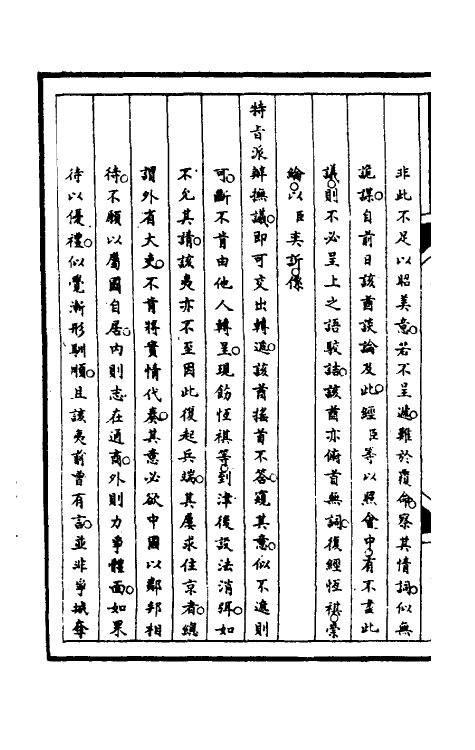 非此不足以昭美意。若不呈遞。難於覆命。察其情詞。似無
詭謀。自前日該酋談論及此。經臣等以照會中。有不盡此
議。則不必呈上之語駁詰。該酋亦俯首無詞。復經恆祺。崇
綸。以臣奕訢。係
特旨派辦撫議。即可交出轉遞。該酋搖首不答。窺其意。似不遞則
可。斷不肯由他人轉呈。現飭恆祺等。到津後設法消弭。如
不允其請。該夷亦不至因此復起兵端。其屢求住京者。總
謂外省大吏。不肯將實情代奏。其意必欲中國以鄰邦相
待。不願以屬國自居。內則志在通商。外則力爭體面。如果
待以優禮。似覺漸形馴順。且該夷前曾有言。並非爭城奪